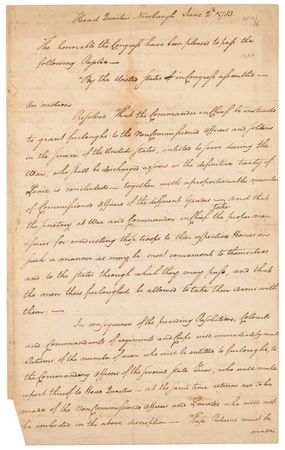 Head Quarters Newburgh June 2d. 1783
The honorable the Congress have been pleased to pass the
following Resolve—
"By the United States in Congress assembled—
On motion
Resolved That the Commander in Chief be instructed
to grant furloughs to the NonCommissioned Officers and soldiers
in the service of the United States, inlisted to serve during the
War, who shall be discharged as soon as the definitive treaty of
Peace is concluded — together with a proportionable number
of Commissioned Officers of the different Grades — and that
the Secretary at War and Commander in Chief take the proper mea
sures for conducting these troops to their respective Homes in
such a manner as may be most convenient to themselves
and to the states through which they may pass, and that
the men thus furloughed be allowed to take their arms with
them —
In consequence of the preceding Resolutions, Colonels
and Commandants of regiments and Corps will immediately make
Returns of the number of men who will be entitled to furloughs, to
the Commanding Officers of the several state lines, who will make
report thereof to Head Quarters — at the same time returns are to be
made of the NonCommissioned Officers and Privates who will not
be included in the above description — These Returns must be
made